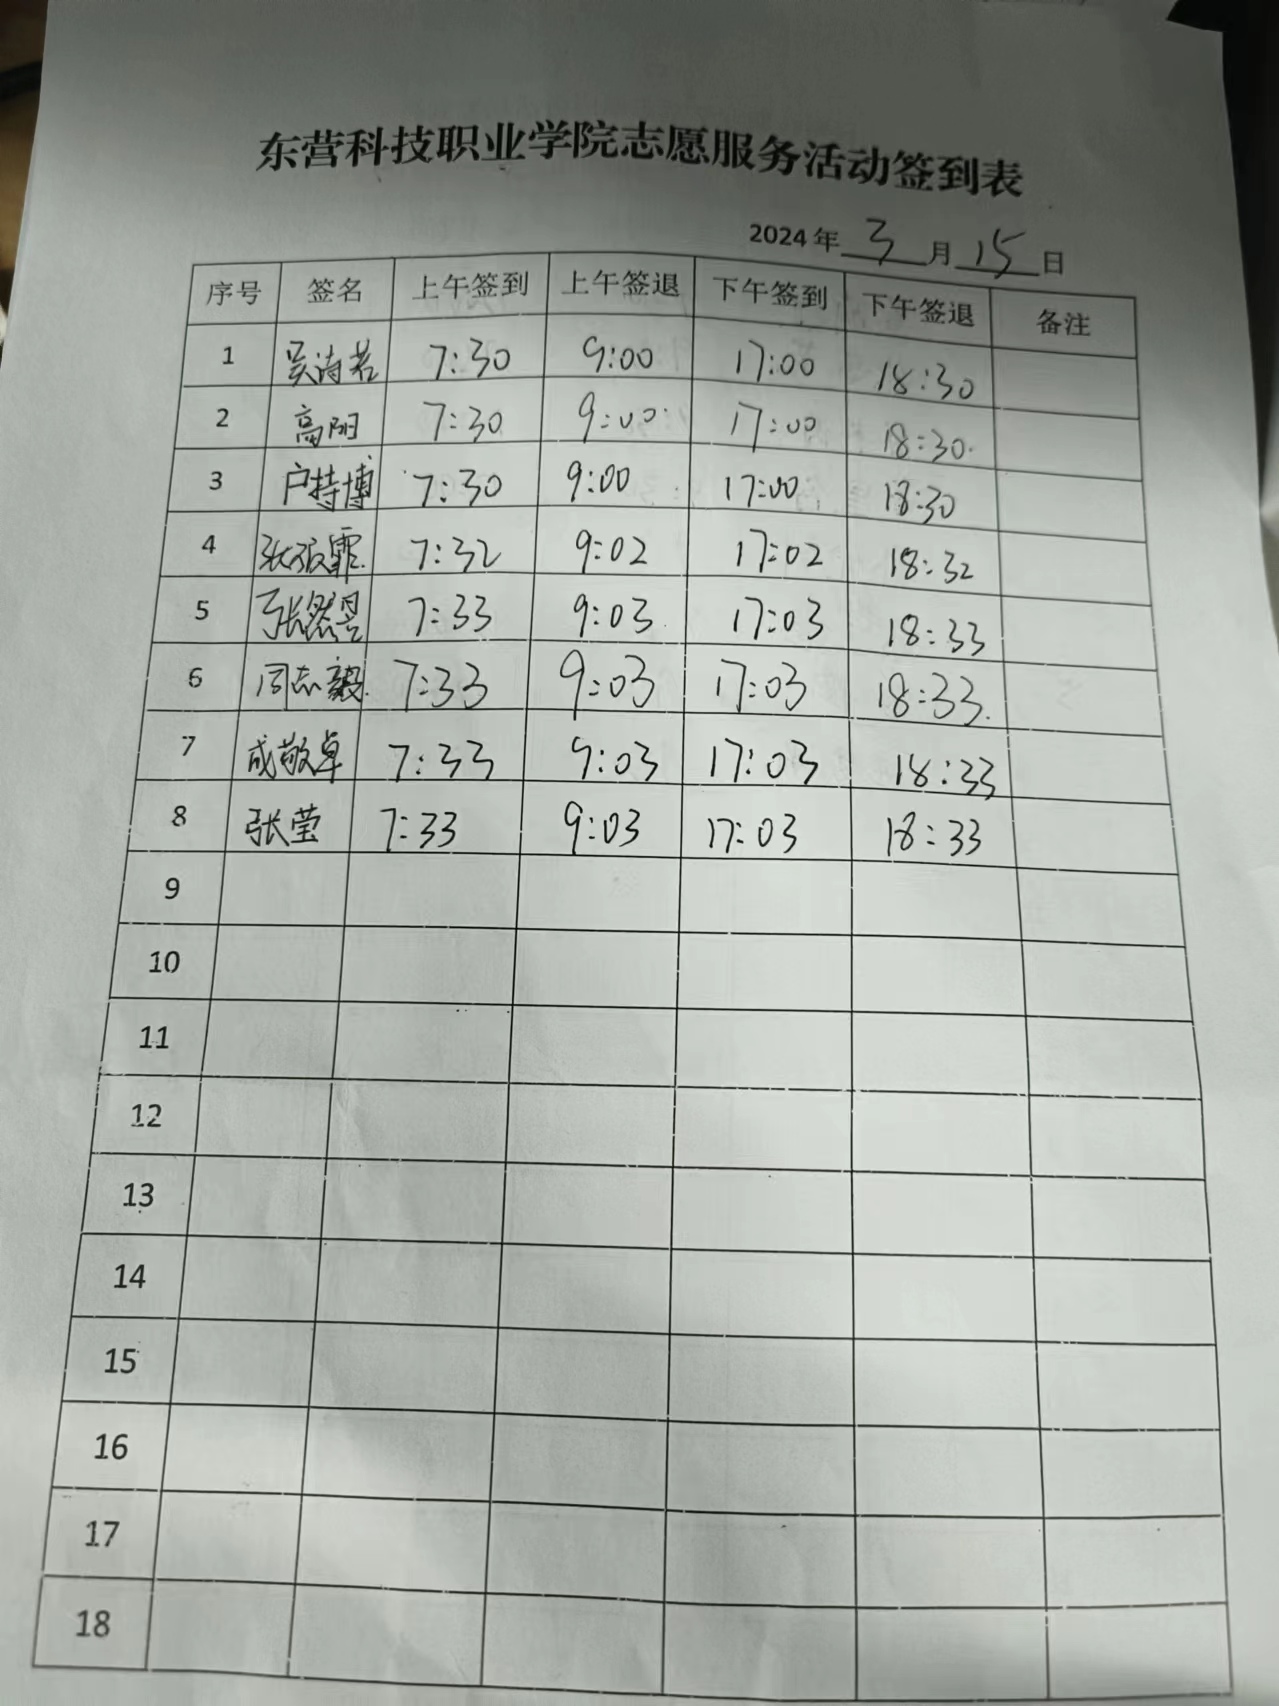 东营科技职业学院志愿服务活动签到表
2024年 3 月 15 日
序号 签名 上午签到 上午签退 下午签到 下午签退 备注
1 吴诗若 7:30 9:00 17:00 18:30
2 高阳 7:30 9:00 17:00 18:30
3 卢特博 7:30 9:00 17:00 18:30
4 7:32 9:02 17:02 18:32
5 7:33 9:03 17:03 18:33
6 周志毅 7:33 9:03 17:03 18:33
7 成敬卓 7:33 9:03 17:03 18:33
8 张莹 7:33 9:03 17:03 18:33
9
10
11
12
13
14
15
16
17
18